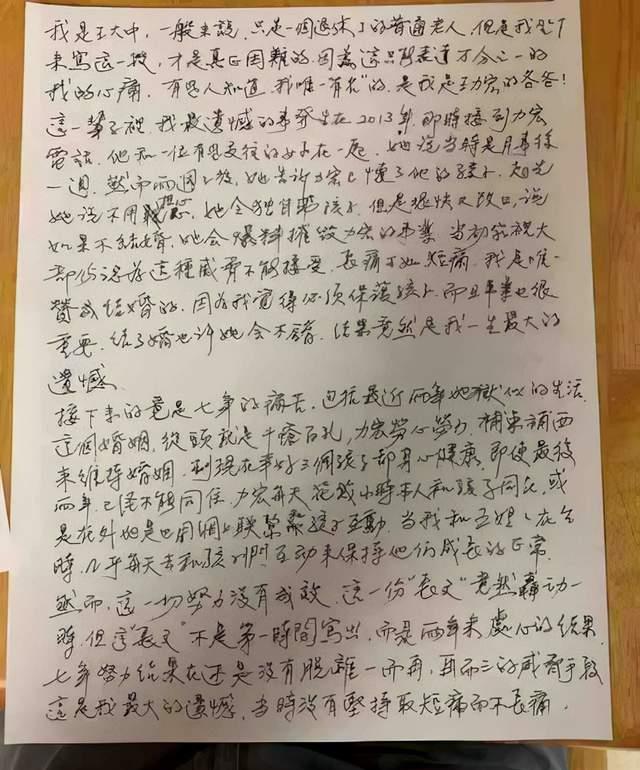 我是王大中，一般來說，只是一個退休了的普通老人，但是我坐下
來寫這一段，才是真正困難的，因為這只能表達万分之一的
我的心痛．有的人知道，我唯一有"名"的，是我是王力宏的爸爸！
這一輩子裡，我最遺憾的事發生在2013年，那時接到力宏
電話，他和一位有過交往的女子在一起．她說當時是月事後
一週．然而兩週之後，她告訴力宏已懷了他的孩子．起先
她說不用擔心，她會獨自帶孩子．但是很快又改口，說
如果不結婚，她会爆料摧毀力宏的事業．當初家裡大
部份認為這種威脅不能接受，長痛不如短痛．我是唯一
贊成結婚的，因為我覺得必須保護孩子，而且事業也很
重要，結了婚也许她会不錯．结果竟然是我一生最大的
遺憾．
接下來的竟是七年的痛苦，包括最近兩年地獄似的生活．
這個婚姻，從頭就是千瘡百孔，力宏勞心勞力，補東補西
來維持婚姻．到現在幸好三個孩子都身心健康，即使最後
兩年，已经不能同住，力宏每天花幾小時本人和孩子同在，或
是在外地也用網上聯繫孩子互動．當我和王媽媽在台
時，几乎每天去和孩子們互动來保持他們成長的正常
然而，這一切努力沒有成效．這一份"長文"竟然轟动一
時，但這"長文"不是第一時間寫出，而是兩年來處心的结果
七年努力结果在还是没有脫離一而再，再而三的威脅手段
這是我最大的遺憾，当時没有堅持取短痛而不長痛．